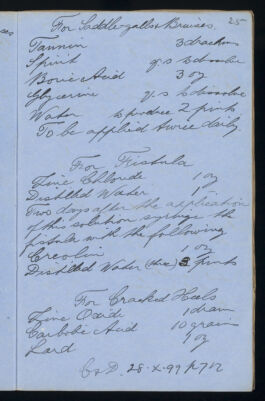 25
For Saddle-galls & Bruises.
Tannin 3 drachm
Spirit q.s. to dissolve
Boric Acid 3 oz
Glycerine q.s. to dissolve
Water to produce 2 pints
To be applied twice daily.
For Fistula
Zinc Chloride 1 oz
Distilled Water 1
Two days after the application
of this solution syringe the
fistula with the following
Creolin 1 oz
Distilled Water 3 pints
For Cracked Heels
Zinc Oxid 1 dram
Carbolic Acid 10 grain
Lard 1 oz
C & D. 28-X-99